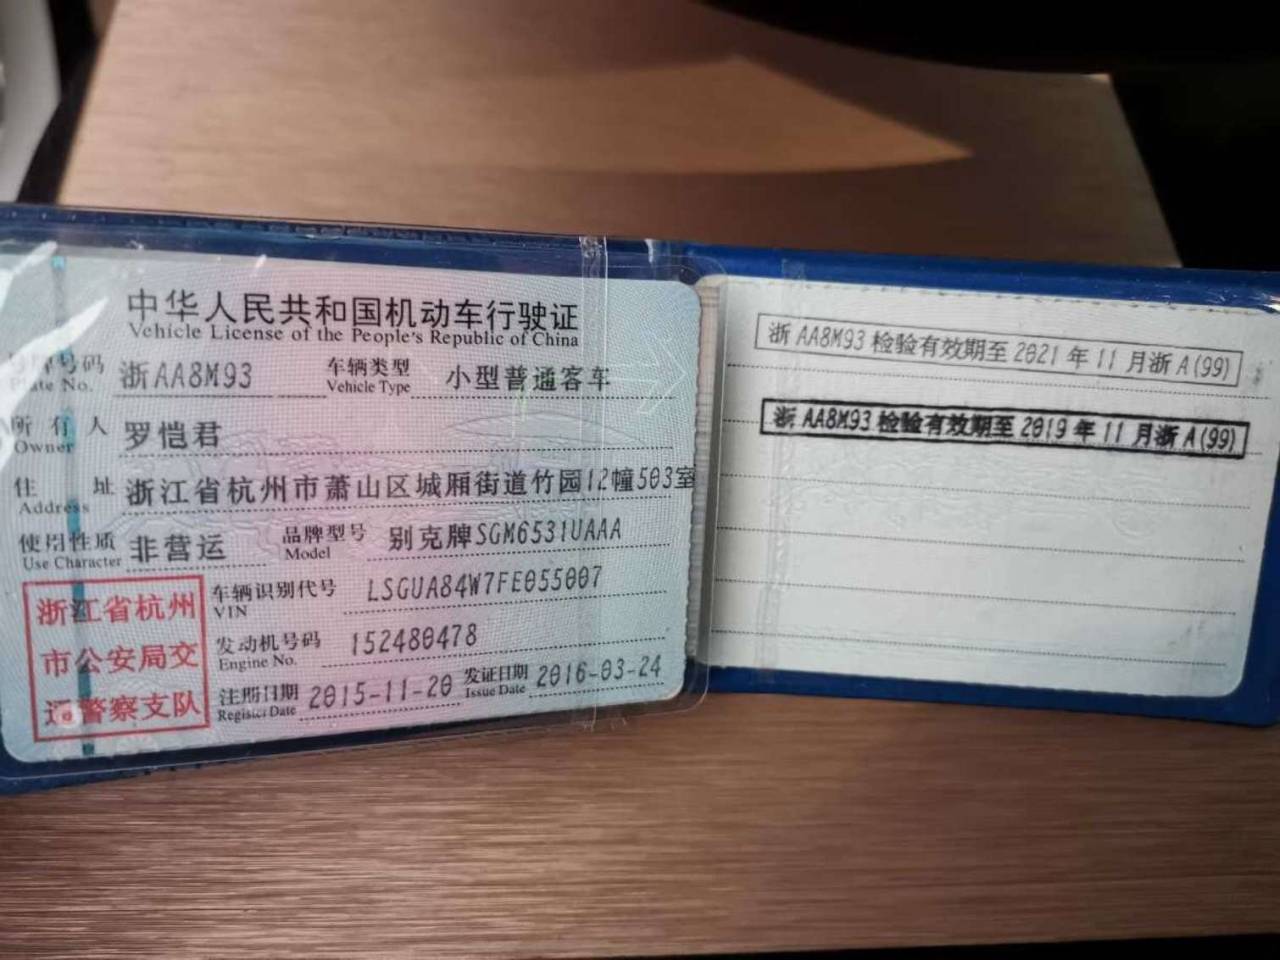 中华人民共和国机动车行驶证
Vehicle License of the People's Republic of China
号牌号码 浙AA8M93 车辆类型 小型普通客车
Plate No. Vehicle Type
所有人 罗恺君
Owner
住址 浙江省杭州市萧山区城厢街道竹园12幢503室
Address
使用性质 非营运 品牌型号 别克牌SGM6531UAAA
Use Character Model
浙江省杭州市公安局交通警察支队
车辆识别代号 LSGUA84W7FE055007
VIN
发动机号码 152480478
Engine No.
注册日期 2015-11-20 发证日期 2016-03-24
Register Date Issue Date
浙AA8M93检验有效期至2021年11月浙A(99)
浙AA8M93检验有效期至2019年11月浙A(99)